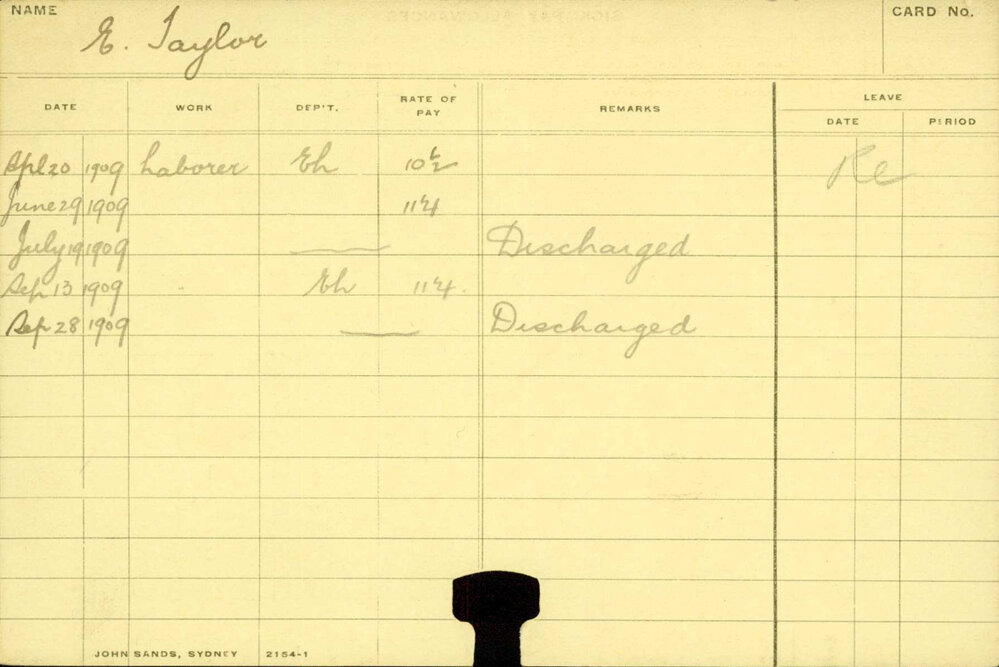 NAME E. Taylor CARD No.
DATE WORK DEP'T. RATE OF PAY REMARKS LEAVE
DATE PERIOD
Apl 20 1909 Laborer Eh 10½ Re
June 29 1909 11¼
July 19 1909 Discharged
Sep 13 1909 Eh 11¼
Sep 28 1909 Discharged
JOHN SANDS, SYDNEY 2154-1